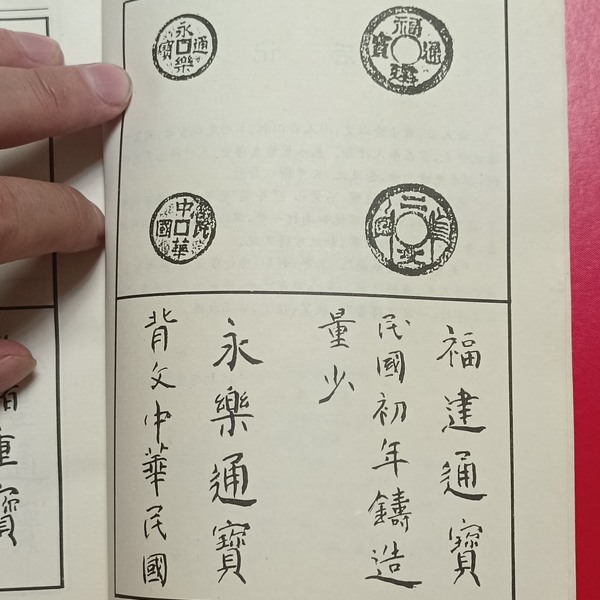 福建通寶
二文
永樂通寶
中華民國
福建通寶
民國初年鑄造
量少
永樂通寶
背文中華民國
重寶